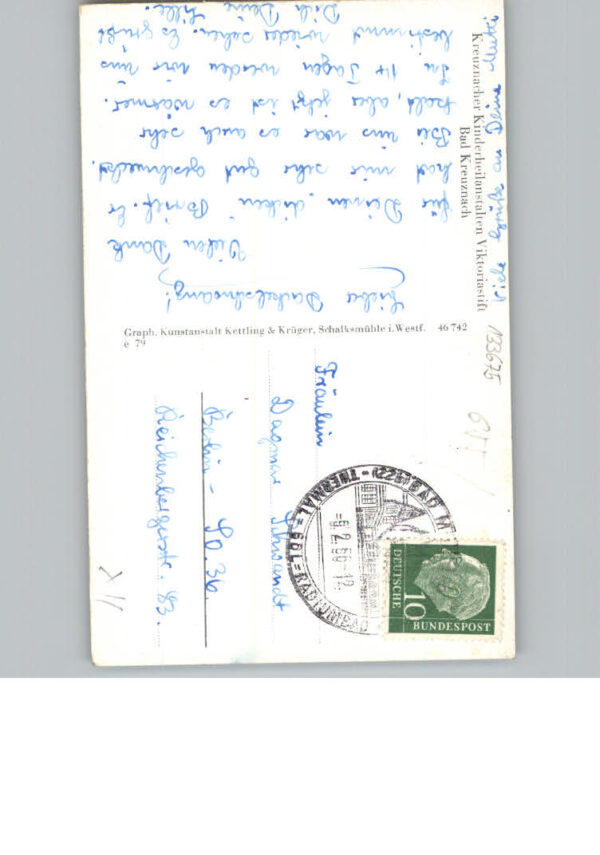 Kreuznacher Kinderheilanstalten Viktoriastift
Bad Kreuznach
Liebe Dackelschwanz!
Vielen Dank
für Deinen "dicken" Brief. Er
hat mir sehr gut geschmeckt.
Bei uns war es auch sehr
kalt, aber jetzt ist es wärmer.
In 14 Tagen werden wir uns
bestimmt wieder sehen. Es grüßt
Dich Deine
Viele Grüße an Deine Mutti!
Graph. Kunstanstalt Kettling & Krüger, Schalksmühle i. Westf. 46 742
e 79
133675
Fräulein
Dagmar Schwandt
Berlin - SO. 36
Reichenbergerstr. 83.
(22b) BAD
THERMAL-SOL-RADIUMBAD
DEUTSCHE
BUNDESPOST
10